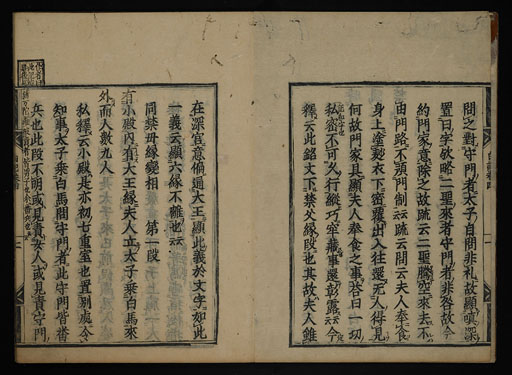 問之對守門者太子自問非礼故顕嗔深
置日字欤略二聖來者守門者非咎故今
約門家意除之故疏云二聖騰空來去不
由門路不須門制云云疏云問云夫人奉食
身上塗麨衣下密覆出入往還无人得見
何故門家具顕夫人奉食之事答曰一切
私密不可久行縱巧牢藏事還彰露云云今
釋云此銘文下禁父縁段也其故夫人雖
在深宮意偷通大王顕此義於文字如此
一義云顕六縁不離也云云
同禁母縁變相 第一段
有小殿内有大王縁夫人立太子乘白馬來
外而人數九人
私釋云小殿是亦初七重室也置別處今
知事太子乘白馬問守門者此守門皆帶
兵也此段不明或見責女人或見責守門